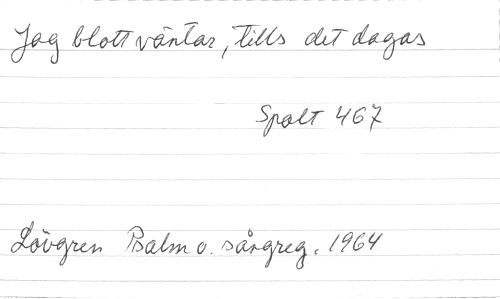 Jag blott väntar, tills det dagas
Spalt 467
Lövgren Psalm o. sångreg. 1964